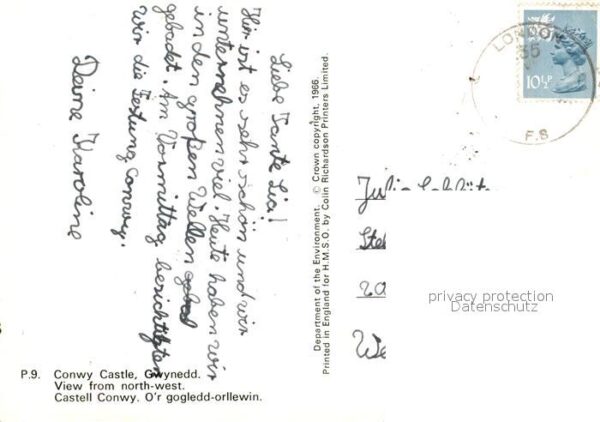 Liebe Tante Lisi!
Hier ist es sehr schön und wir
unternehmen viel. Heute haben wir
in den großen Wellen gebad
gebadet. Am Vormittag besichtigten
wir die Festung Conwy.
Deine Karoline
Department of the Environment. © Crown copyright, 1966.
Printed in England for H.M.S.O. by Colin Richardson Printers Limited.
P.9. Conwy Castle, Gwynedd.
View from north-west.
Castell Conwy. O'r gogledd-orllewin.
LONDON
F.S
10½P
privacy protection
Datenschutz